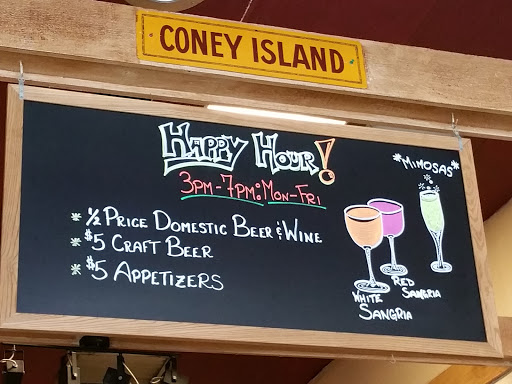 CONEY ISLAND
HAPPY HOUR!
3PM-7PM: MON-FRI
* ½ PRICE DOMESTIC BEER & WINE
* $5 CRAFT BEER
* $5 APPETIZERS
*MIMOSAS*
WHITE SANGRIA
RED SANGRIA